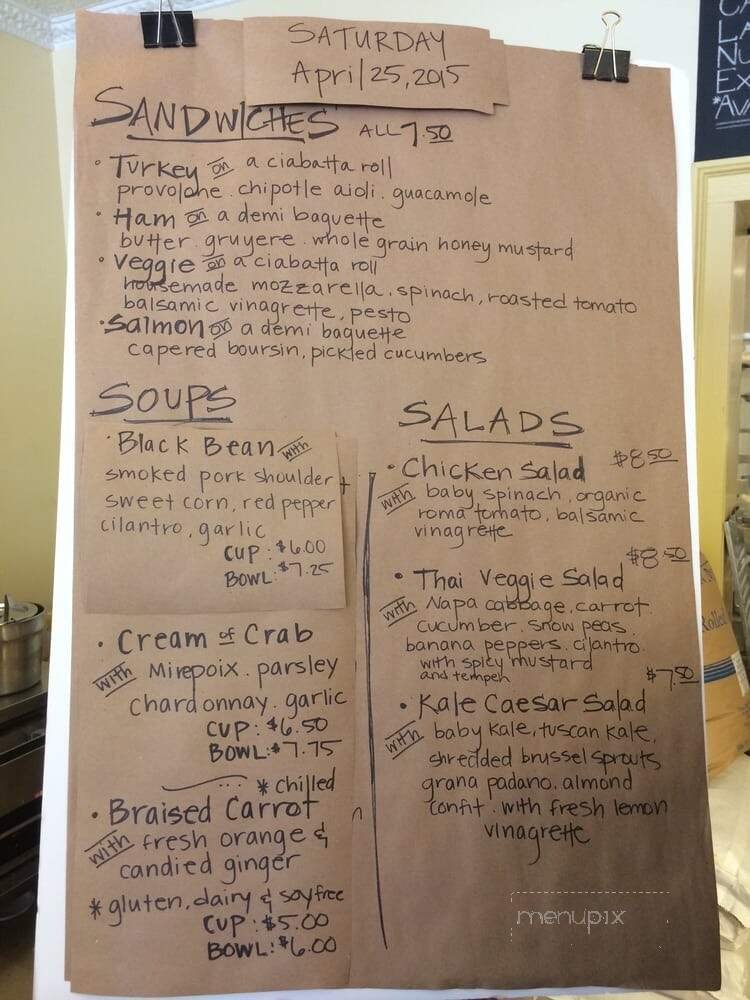 SATURDAY
April 25, 2015
SANDWICHES ALL 7.50
• Turkey on a ciabatta roll
provolone. chipotle aioli. guacamole
• Ham on a demi baguette
butter. gruyere. whole grain honey mustard
• Veggie on a ciabatta roll
housemade mozzarella. spinach, roasted tomato
balsamic vinagrette, pesto
• Salmon on a demi baguette
capered boursin, pickled cucumbers
SOUPS
• Black Bean with
smoked pork shoulder
sweet corn, red pepper
cilantro, garlic
CUP: $6.00
BOWL: $7.25
• Cream of Crab
with Mirepoix. parsley
chardonnay. garlic
CUP: $6.50
BOWL: $7.75
* chilled
• Braised Carrot
with fresh orange &
candied ginger
* gluten, dairy & soy free
CUP: $5.00
BOWL: $6.00
SALADS
• Chicken Salad $8.50
with baby spinach, organic
roma tomato, balsamic
vinagrette
$8.50
• Thai Veggie Salad
with Napa cabbage, carrot
cucumber. snow peas.
banana peppers. cilantro
with spicy mustard
and tempeh
$7.50
• Kale Caesar Salad
with baby kale, tuscan kale,
shredded brussel sprouts
grana padano. almond
confit. with fresh lemon
vinagrette
menupix
CA
LA
NU
EX
*AVA
Rolled